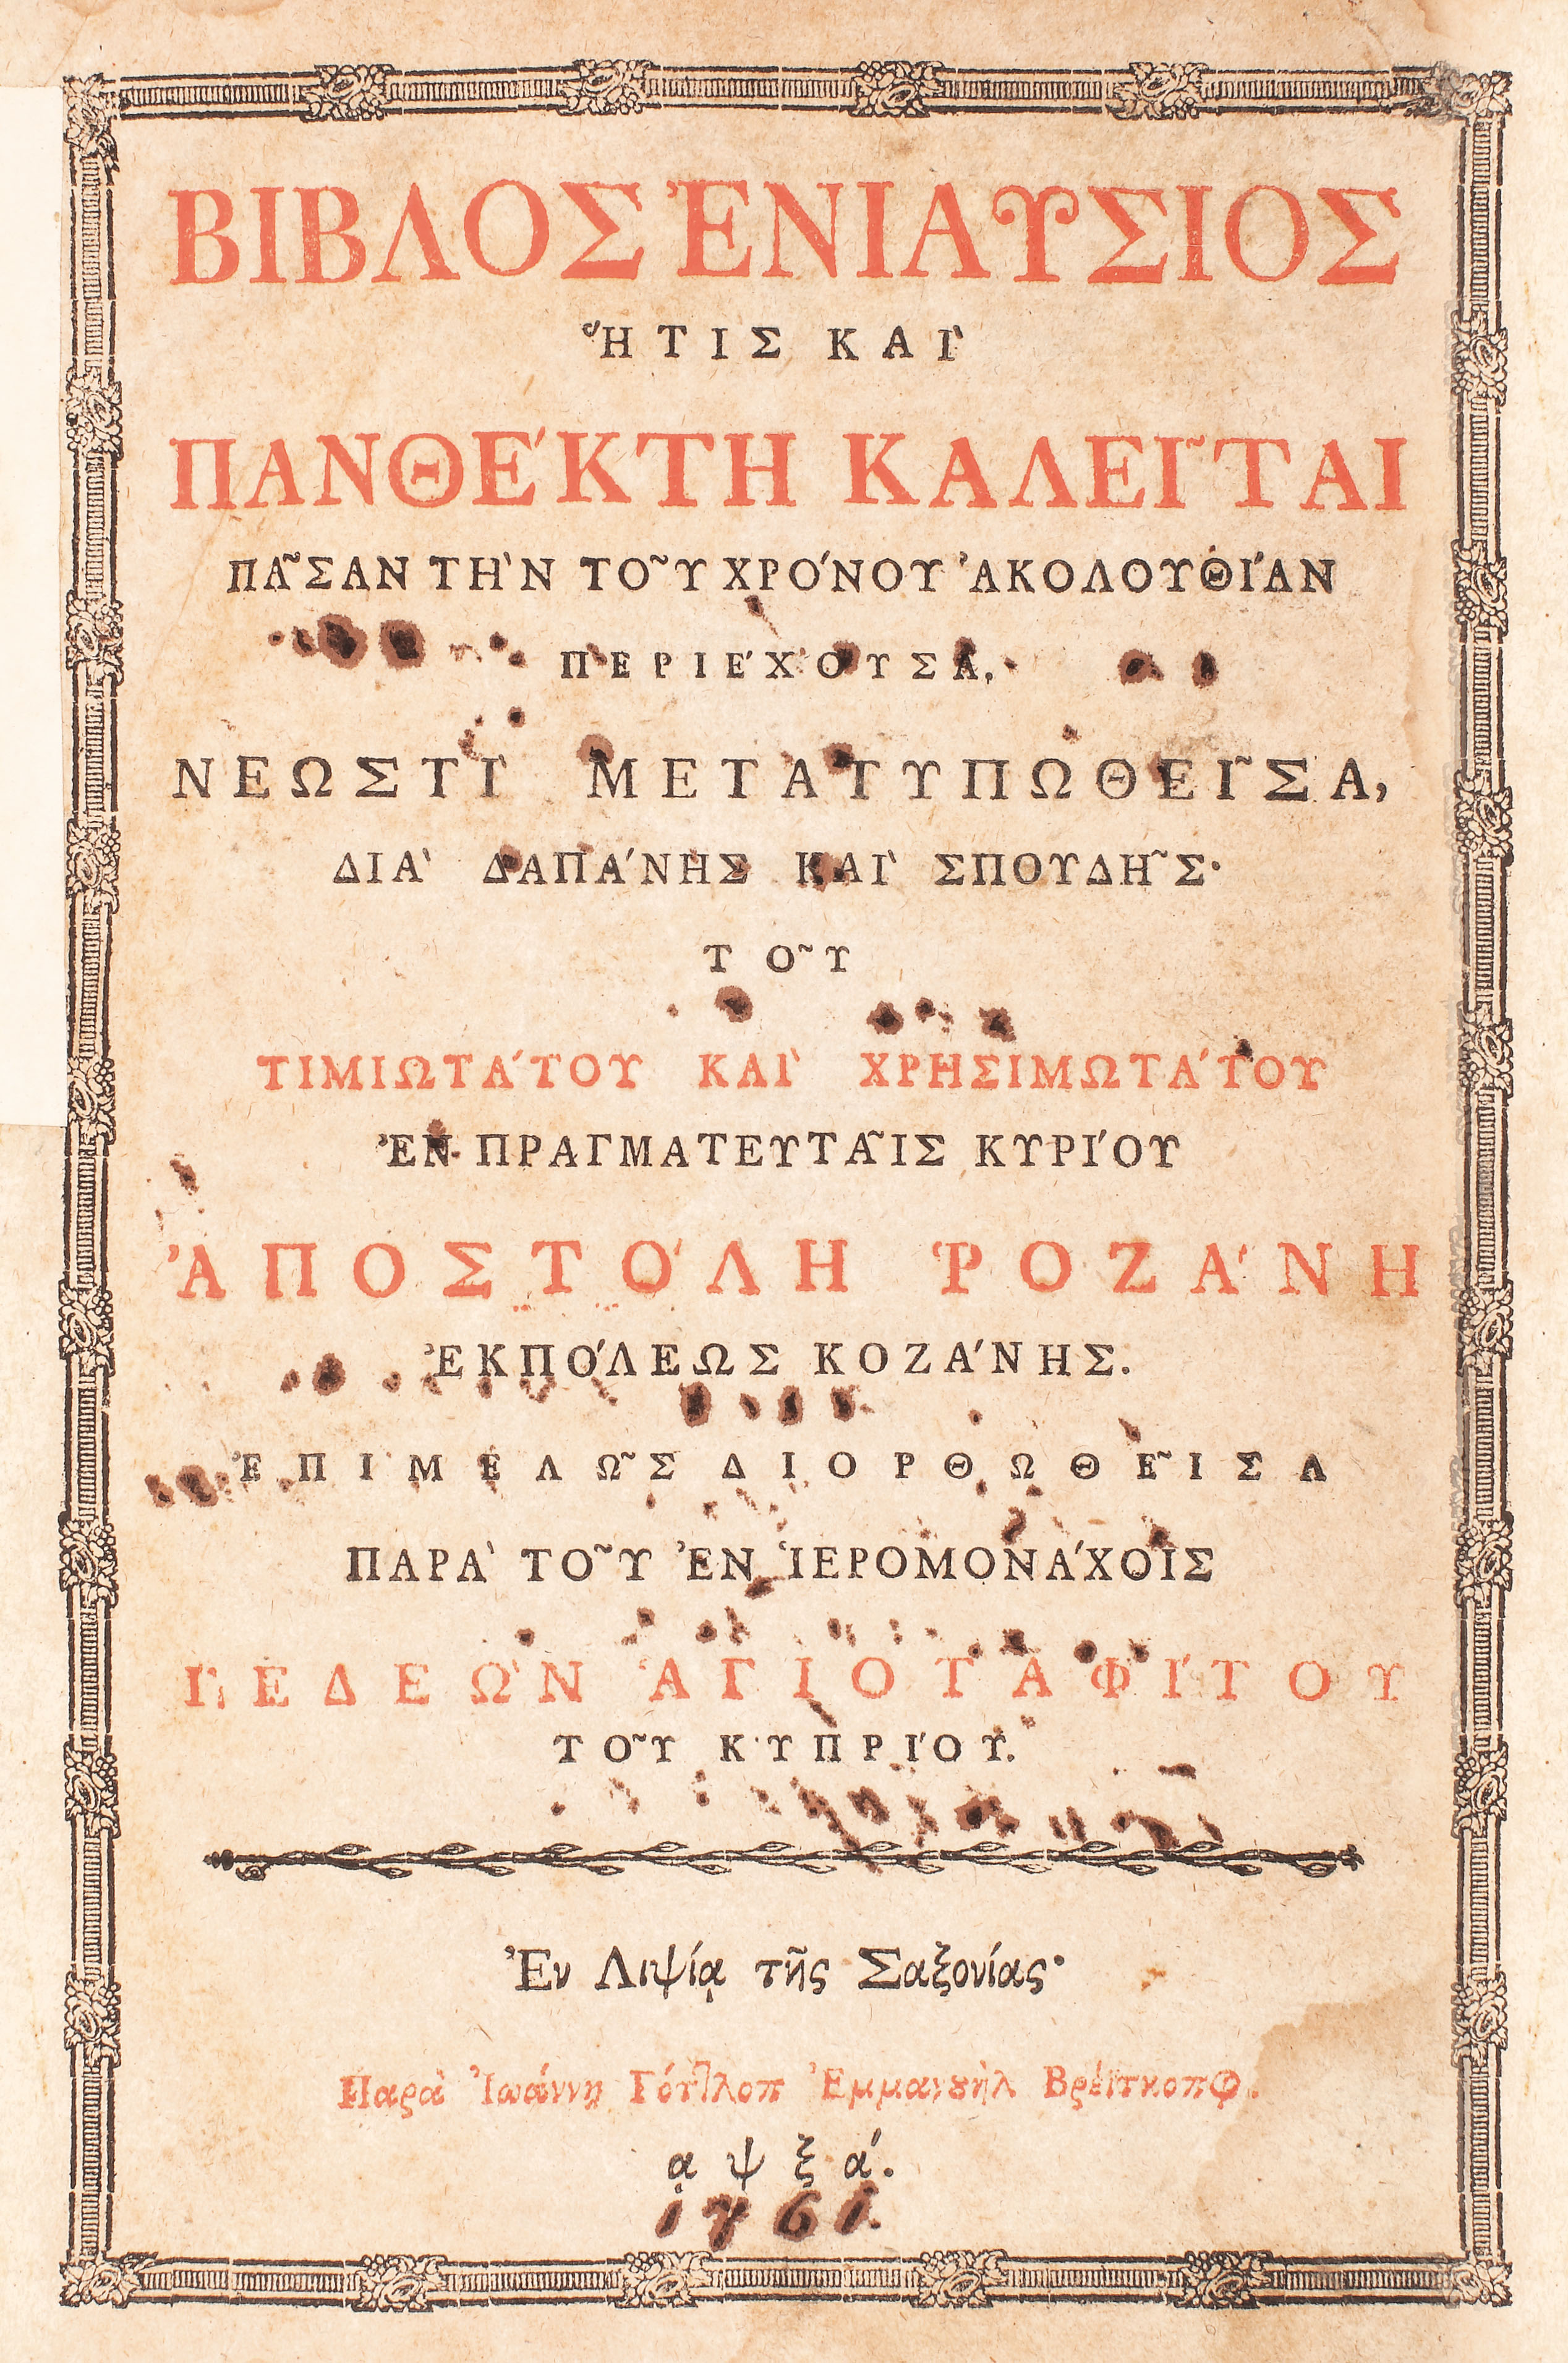 ΒΙΒΛΟΣ ἘΝΙΑΥΣΙΟΣ
ἭΤΙΣ ΚΑῚ
ΠΑΝΘΈΚΤΗ ΚΑΛΕΙ͂ΤΑΙ
ΠΑ͂ΣΑΝ ΤῊΝ ΤΟ͂Υ ΧΡΌΝΟΥ ἈΚΟΛΟΥΘΊΑΝ
ΠΕΡΙΈΧΟΥΣΑ,
ΝΕΩΣΤῚ ΜΕΤΑΤΥΠΩΘΕΙ͂ΣΑ,
ΔΙᾺ ΔΑΠΆΝΗΣ ΚΑῚ ΣΠΟΥΔΗ͂Σ·
ΤΟ͂Υ
ΤΙΜΙΩΤΆΤΟΥ ΚΑῚ ΧΡΗΣΙΜΩΤΆΤΟΥ
ἘΝ ΠΡΑΓΜΑΤΕΥΤΑ͂ΙΣ ΚΥΡΊΟΥ
ἈΠΟΣΤΌΛΗ ῬΟΖΆΝΗ
ἘΚΠΌΛΕΩΣ ΚΟΖΆΝΗΣ.
ἘΠΙΜΕΛΩ͂Σ ΔΙΟΡΘΩΘΕ͂ΙΣΑ
ΠΑΡᾺ ΤΟ͂Υ ἘΝ ἹΕΡΟΜΟΝΆΧΟΙΣ
ΓΕΔΕῺΝ ἉΓΙΟΤΑΦΊΤΟΥ
ΤΟ͂Υ ΚΥΠΡΊΟΥ.
Ἐν Λιψίᾳ τῆς Σαξονίας·
Παρὰ Ἰωάννῃ Γότλοπ Ἐμμανȣὴλ Βρέιτκοπφ.
͵αψξά.
1761.